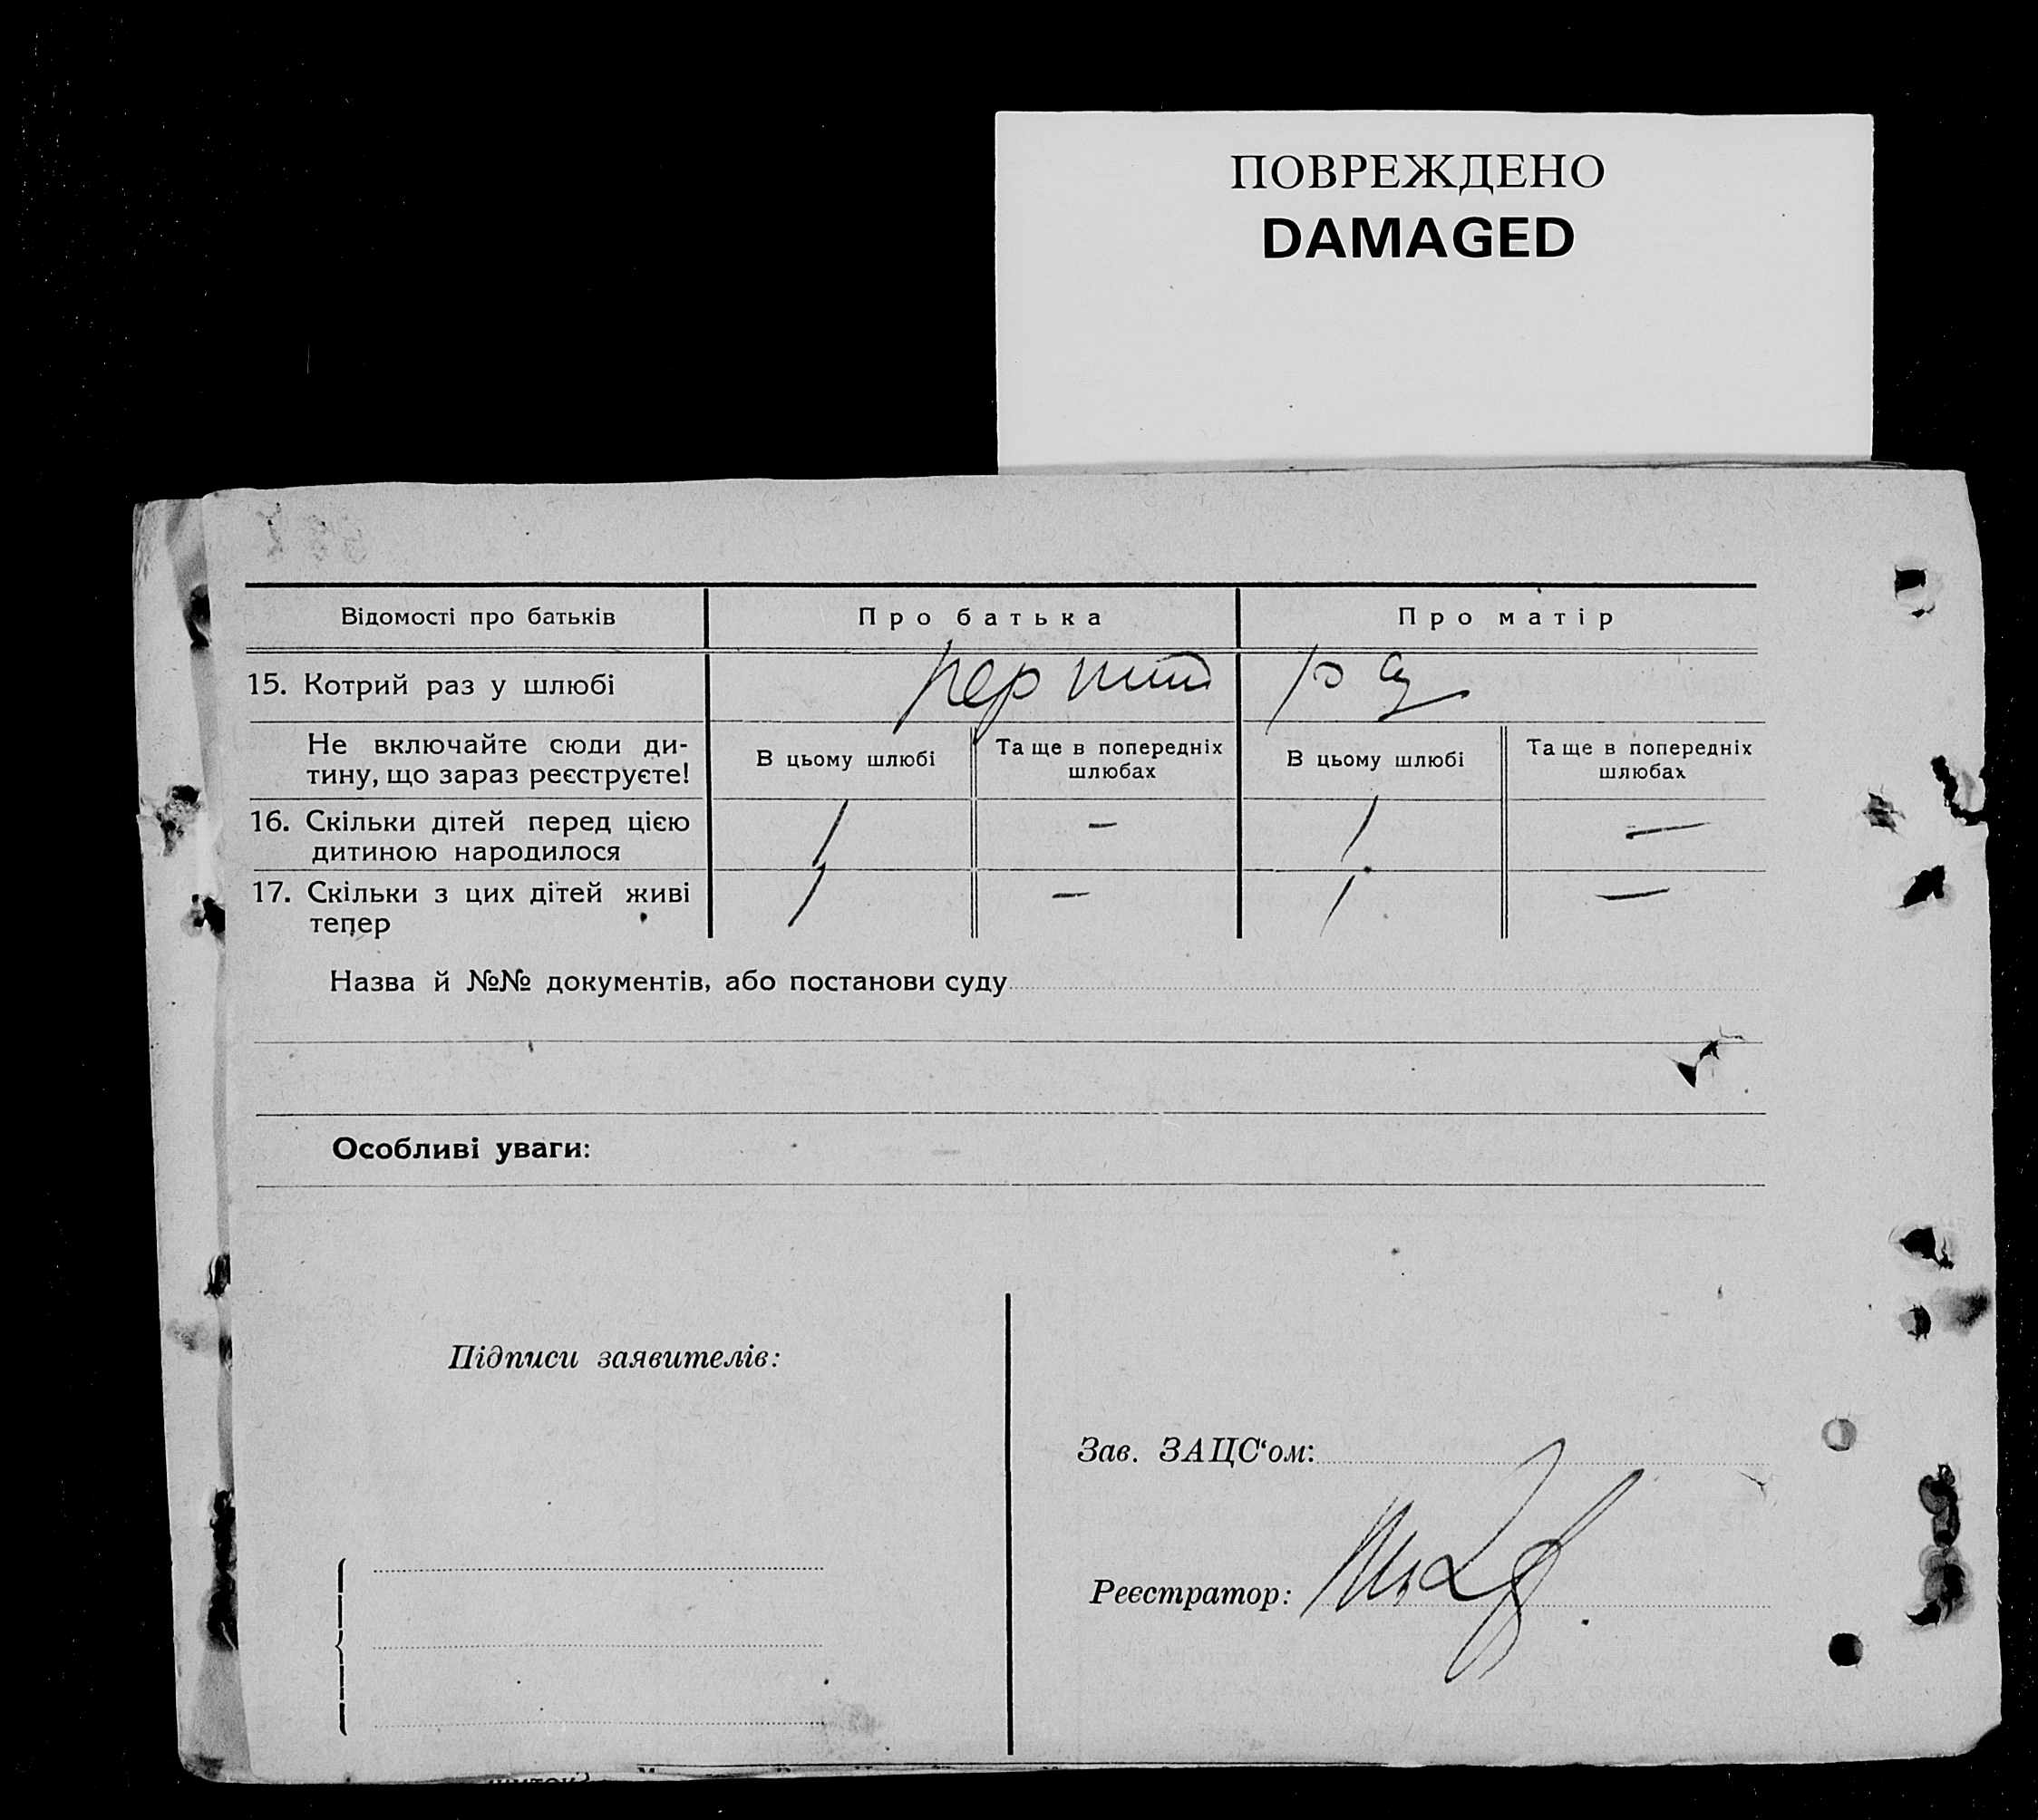 ПОВРЕЖДЕНО
DAMAGED
Відомості про батьків
Про батька
Про матір
15. Котрий раз у шлюбі
перший раз
Не включайте сюди ди-
тину, що зараз реєструєте!
В цьому шлюбі
Та ще в попередніх
шлюбах
В цьому шлюбі
Та ще в попередніх
шлюбах
16. Скільки дітей перед цією
дитиною народилося
1 — 1 —
17. Скільки з цих дітей живі
тепер
1 — 1 —
Назва й №№ документів, або постанови суду
Особливі уваги:
Підписи заявителів:
Зав. ЗАЦС‘ом:
Реєстратор: